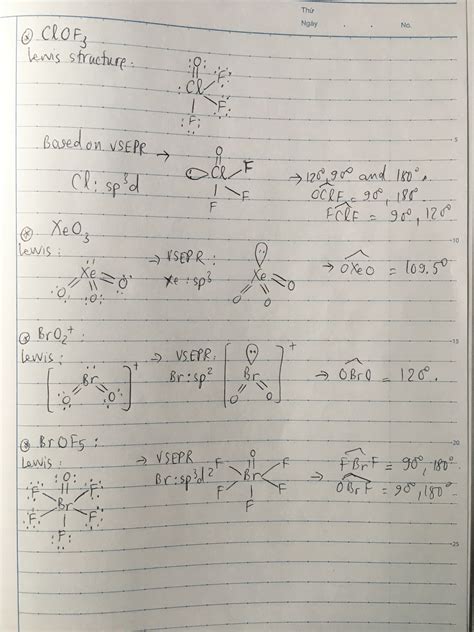 Thứ
Ngày No.
⊛ ClOF3
lewis structure:
O
Cl F
F
F
5
Based on VSEPR →
Cl: sp³d
O
Cl F
F F
→ 120°, 90° and 180°.
OClF = 90°, 180°
FClF = 90°, 120°
10
⊛ XeO3
lewis:
Xe
O O O
→ VSEPR:
Xe: sp³
Xe
O O O
→ OXeO = 109.5°
15
⊛ BrO2+:
lewis:
[ Br O O ]+
→ VSEPR:
Br: sp²
[ Br O O ]+
→ OBrO = 120°.
20
⊛ BrOF5:
lewis:
O
F F
Br
F F
F
→ VSEPR
Br: sp³d²
O
F F
Br
F F
F
→ FBrF = 90°, 180°.
OBrF = 90°, 180°
25